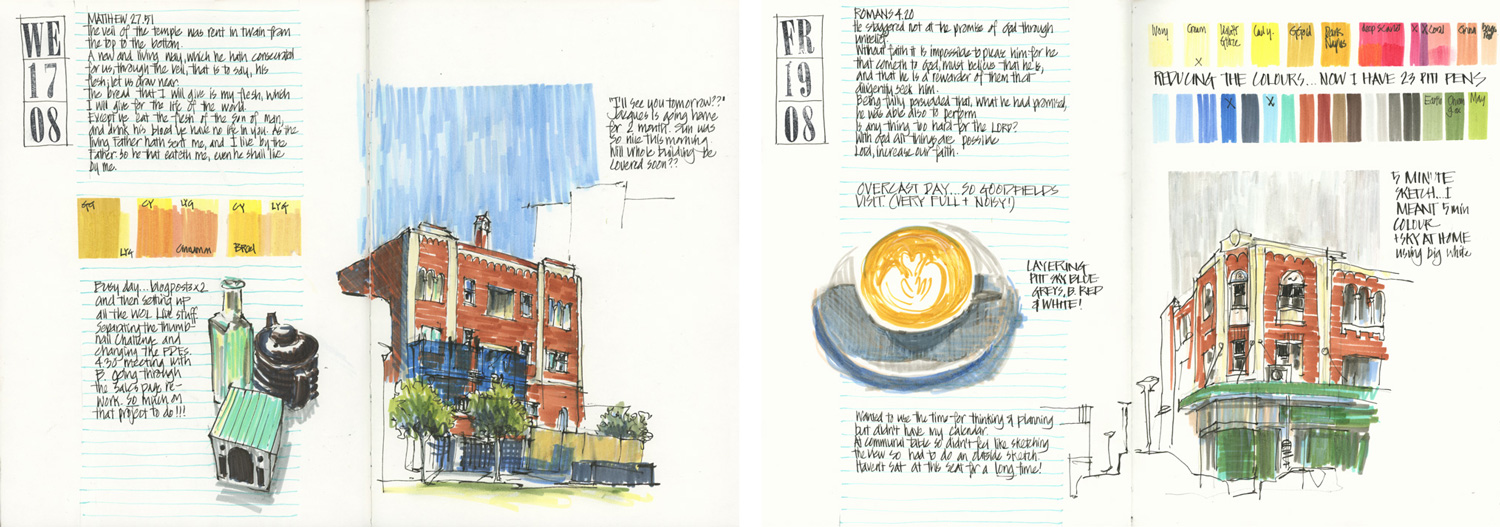 WE
17
08
MATTHEW 27.51
The veil of the temple was rent in twain from
the top to the bottom.
A new and living way, which he hath consecrated
for us, through the veil, that is to say, his
flesh; let us draw near.
The bread that I will give is my flesh, which
I will give for the life of the world.
Except ye eat the flesh of the Son of man,
and drink his blood ye have no life in you. As the
living Father hath sent me, and I live by the
Father: so he that eateth me, even he shall live
by me.
GG
LYG
CY
LYG
Cinnamon
CY
LYG
BRGOL
Busy day... blogposts x 2
and then setting up
all the WQL Live stuff
Separating the thumb-
nail challenge and
changing the PDFs.
4.30 meeting with
B. going through
the sales page re-
work. So much on
that project to do!!!
"I'll see you tomorrow??"
Jacques is going home
for 2 month. Sun was
so nice this morning
Will whole building be
covered soon??
FR
19
08
ROMANS 4.20
He staggered not at the promise of God through
unbelief.
Without faith it is impossible to please him: for he
that cometh to God, must believe that he is,
and that he is a rewarder of them that
diligently seek him.
Being fully persuaded that, what he had promised,
he was able also to perform
Is any thing too hard for the LORD?
With God all things are possible
Lord, increase our faith.
OVERCAST DAY... SO GOODFIELDS
VISIT. (VERY FULL + NOISY!)
LAYERING
PITT SKY BLUE
GREYS, B. RED
& WHITE!
Wanted to use the time for thinking & planning
but didn't have my calendar.
At communal table so didn't feel like sketching
the view so had to do an outside sketch.
Haven't sat at this seat for a long time!
Ivory
Cream
X
Light
Cad y.
Gr Gold
Dark
Naples
deep scarlet
X
X
Coral
Cinna
REDUCING THE COLOURS... NOW I HAVE 23 PITT PENS
X
X
Earth
Chrom
May
5 MINUTE
SKETCH... I
MEANT 5 min
COLOUR
+ SKY AT HOME
using big white